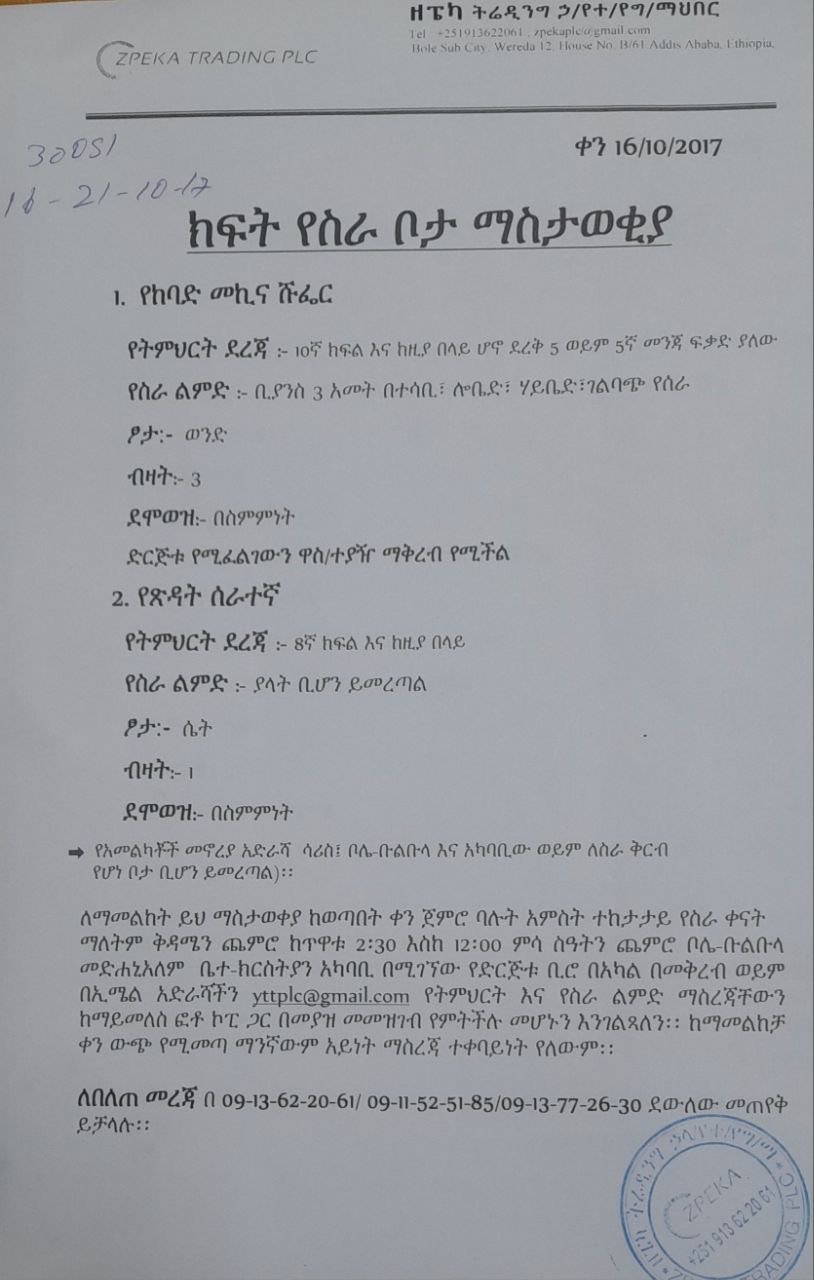 ዘፔካ ትሬዲንግ ኃ/የተ/የግ/ማህበር
Tel : +251913622061 , zpekaplc@gmail.com
Bole Sub City, Wereda 12, House No. B/61 Addis Ababa, Ethiopia.
ZPEKA TRADING PLC
ቀን 16/10/2017
30051
16-21-10-17
ክፍት የስራ ቦታ ማስታወቂያ
1. የከባድ መኪና ሹፌር
የትምህርት ደረጃ :- 10ኛ ከፍል እና ከዚያ በላይ ሆኖ ደረቅ 5 ወይም 5ኛ መንጃ ፍቃድ ያለው
የስራ ልምድ :- ቢያንስ 3 አመት በተሳቢ፣ ሎቤድ፣ ሃይቤድ፣ገልባጭ የሰራ
ፆታ:- ወንድ
ብዛት:- 3
ደሞወዝ:- በስምምነት
ድርጅቱ የሚፈልገውን ዋስ/ተያዥ ማቅረብ የሚችል
2. የጽዳት ሰራተኛ
የትምህርት ደረጃ :- 8ኛ ከፍል እና ከዚያ በላይ
የስራ ልምድ :- ያላት ቢሆን ይመረጣል
ፆታ:- ሴት
ብዛት:- 1
ደሞወዝ:- በስምምነት
➡ የአመልካቾች መኖሪያ አድራሻ ሳሪስ፤ ቦሌ-ቡልቡላ እና አካባቢው ወይም ለስራ ቅርብ
የሆነ ቦታ ቢሆን ይመረጣል)፡፡
ለማመልከት ይህ ማስታወቀያ ከወጣበት ቀን ጀምሮ ባሉት አምስት ተከታታይ የስራ ቀናት
ማለትም ቅዳሜን ጨምሮ ከጥዋቱ 2:30 እስከ 12:00 ምሳ ስዓትን ጨምሮ ቦሌ-ቡልቡላ
መድሐኒአለም ቤተ-ክርስትያን አካባቢ በሚገኘው የድርጅቱ ቢሮ በአካል በመቅረብ ወይም
በኢሜል አድራሻችን yttplc@gmail.com የትምህርት እና የስራ ልምድ ማስረጃቸውን
ከማይመለስ ፎቶ ኮፒ ጋር በመያዝ መመዝገብ የምትችሉ መሆኑን እንገልጻለን፡፡ ከማመልከቻ
ቀን ውጭ የሚመጣ ማንኛውም አይነት ማስረጃ ተቀባይነት የለውም፡፡
ለበለጠ መረጃ በ 09-13-62-20-61/ 09-11-52-51-85/09-13-77-26-30 ደውለው መጠየቅ
ይቻላሉ፡፡
ZPEKA
+251 913 62 20 61
TRADING PLC